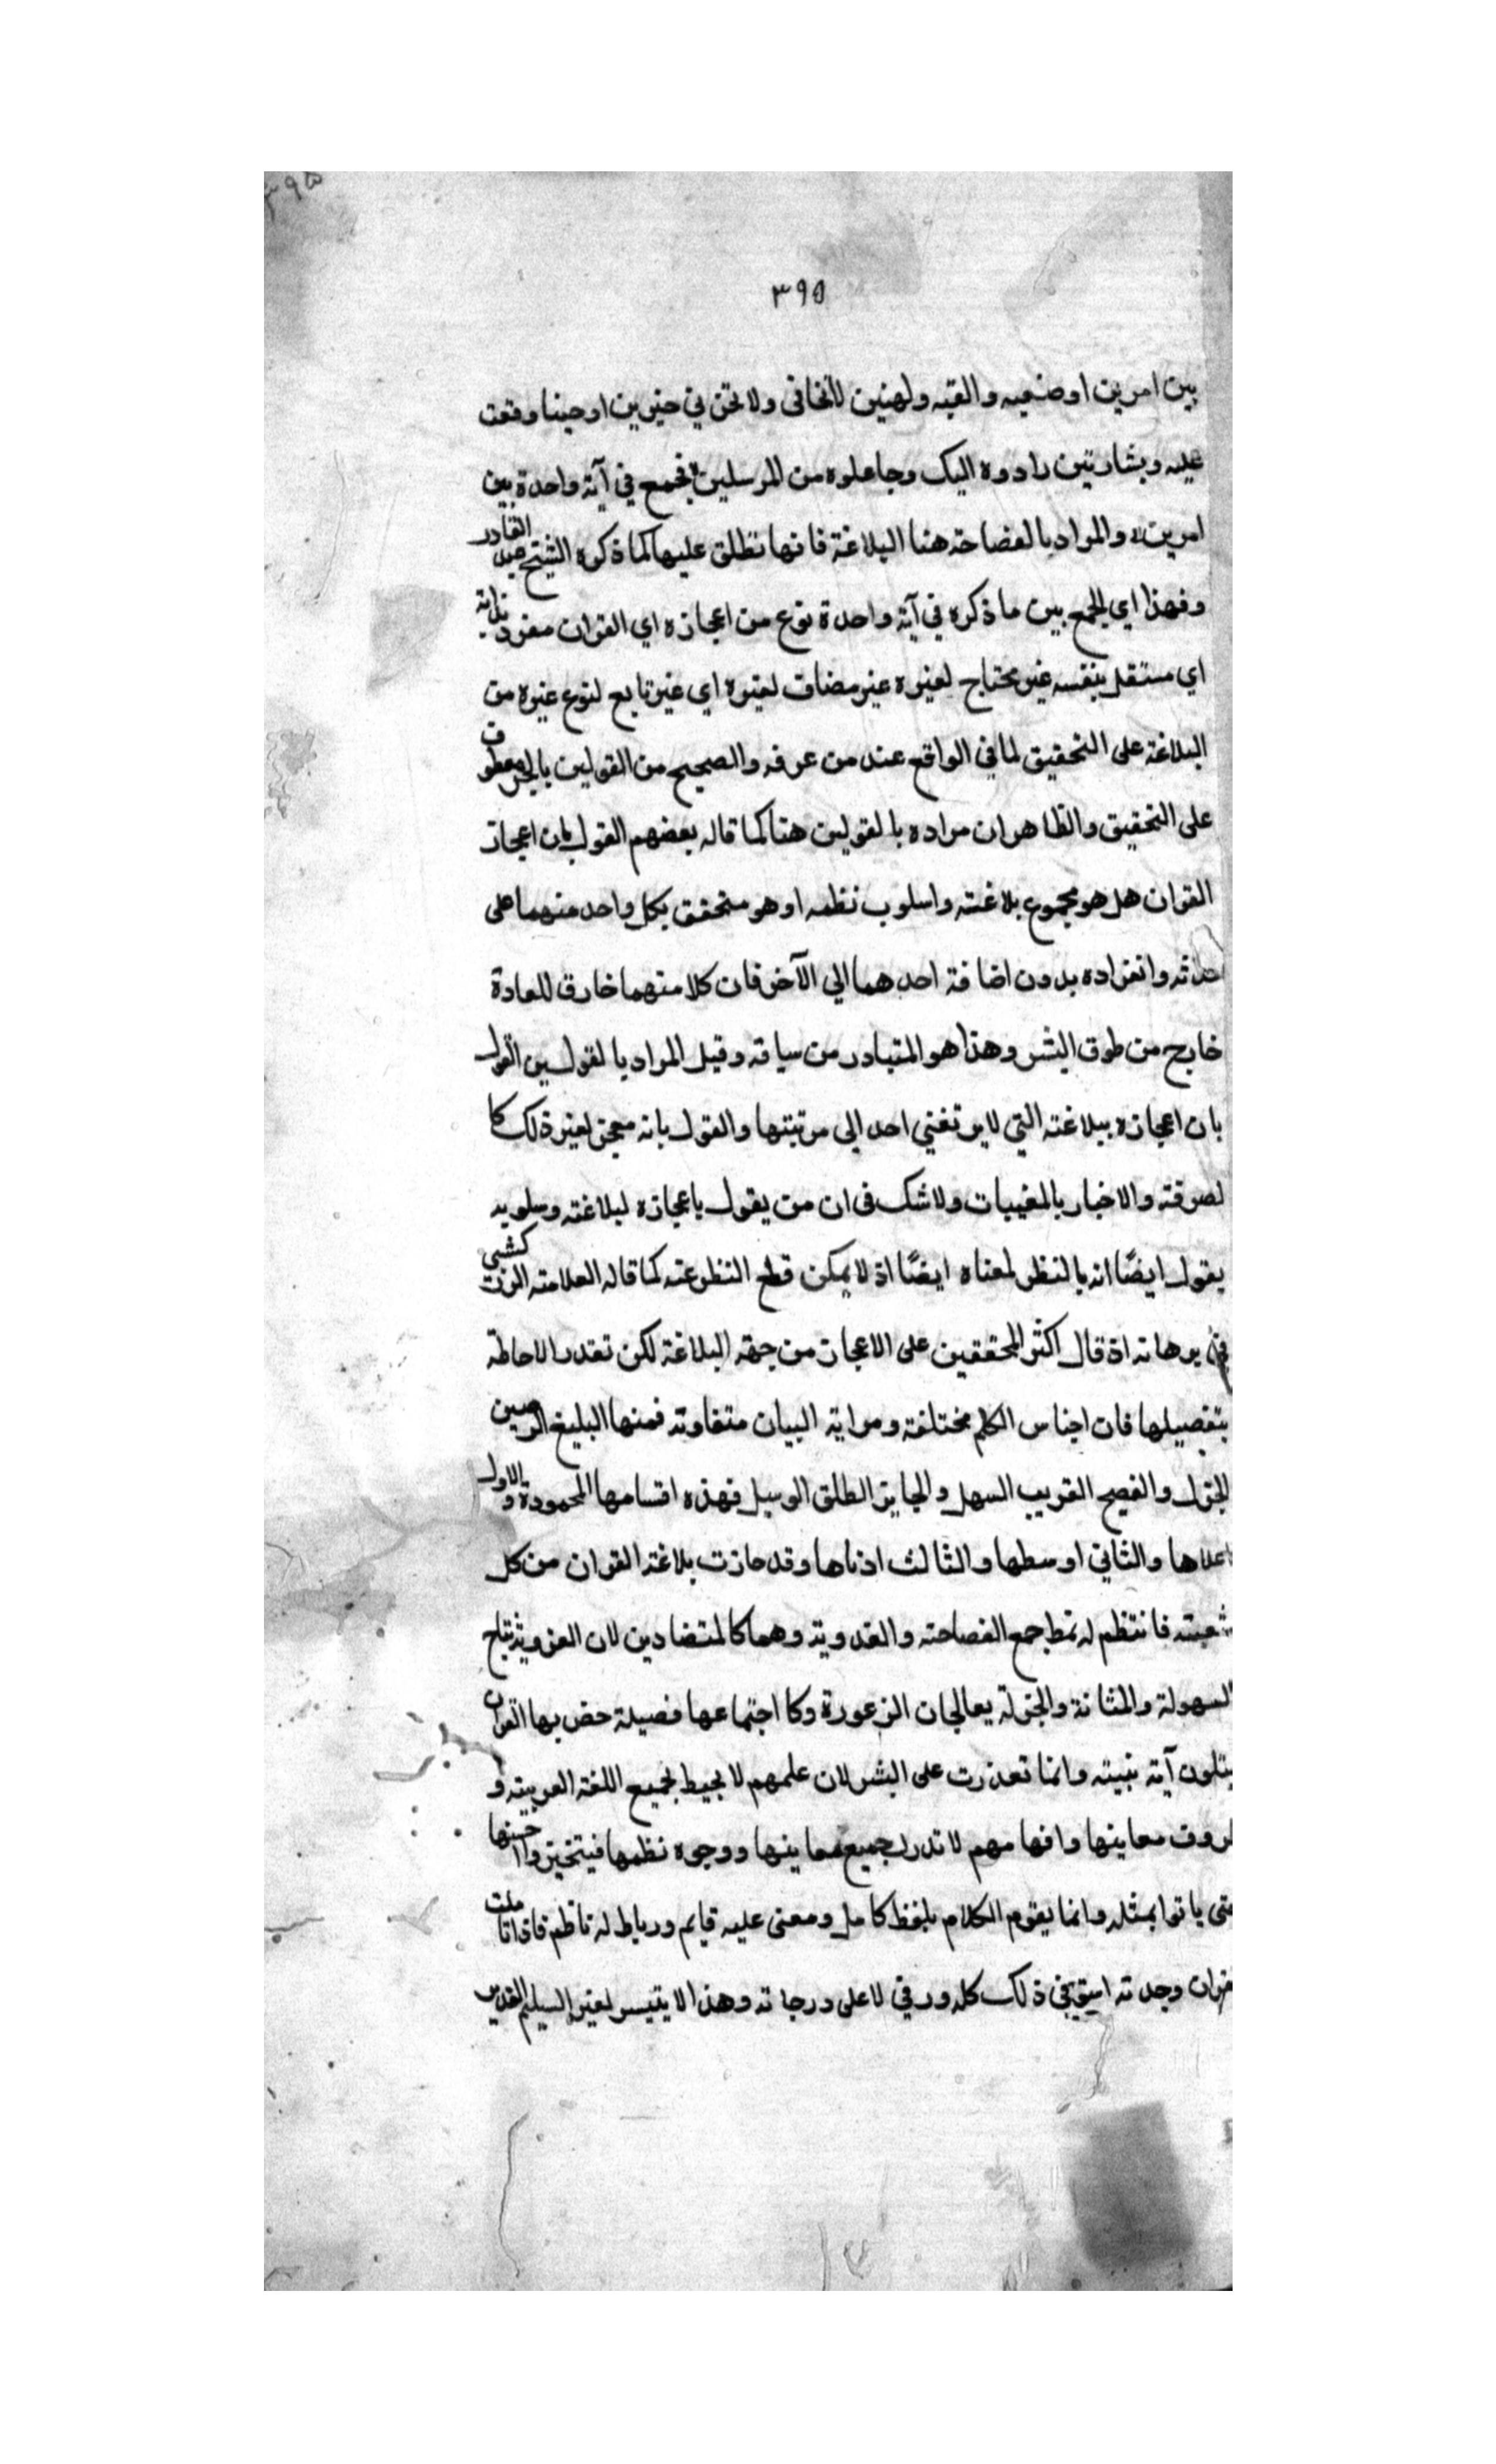 ٣٩٥
٣٩٥
بين امرين اوضعيه والقيه ولهنين لاتخافى ولا تحزني خيرين اوحينا وقعت
عليه وبشارتين رادوه اليك وجاعلوه من المرسلين فجمع في آية واحدة بين
امرين والمراد بالفصاحة هنا البلاغة فانها تطلق عليها كما ذكره الشيخ عبد القادر
وفهذا اي الجمع بين ما ذكره في آية واحدة نوع من اعجازه اي القران منفرد بذاته
اي مستقل بنفسه غير محتاج لغيره غير مضاف لغيره اي غير تابع لنوع غيره من
البلاغة على التحقيق لما في الواقع عند من عرفه والصحيح من القولين بالجر معطوف
على التحقيق والظاهر ان مراده بالقولين هنا كما قاله بعضهم القول بان اعجاز
القران هل هو مجموع بلاغته واسلوب نظمه او هو متحقق بكل واحد منهما على
حدته وانفراده بدون اضافة احدهما الي الآخر فان كلا منهما خارق للعادة
خارج من طوق البشر وهذا هو المتبادر من سياقه وقيل المراد بالقولين القول
بان اعجازه ببلاغته التي لا يرتغني احد الى مرتبتها والقول بانه معجز لغير ذلك كا
لصرفة والاخبار بالمغيبات ولا شك فى ان من يقول باعجازه لبلاغته وسلوبه
يقول ايضًا انه بالنظر لمعناه ايضًا اذ لا يمكن قطع النظر عنه كما قاله العلامة الزركشي
في برهانه اذ قال اكثر المحققين على الاعجاز من جهة البلاغة لكن تعذر الاحاطة
بتفصيلها فان اجناس الكلم مختلفة ومراتة البيان متفاوتة فمنها البليغ الرصين
الجزل والفصيح القريب السهل والجايز الطلق الوسيل فهذه اقسامها المحمودة والاول
اعلاها والثاني اوسطها والثالث ادناها وقد حازت بلاغة القران من كل
شعبته فانتظم له نمط جمع الفصاحة والعذوبة وهما كالمتضادين لان العذوبة نتاج
السهولة والمتانة والجزلة يعالجان الزعورة وكا اجتماعها فضيلة خص بها القران
يتلون آية بنيته وانما تعذرت على البشر لان علمهم لا يحيط بجميع اللغة العربية و
ظروف معاينها وافهامهم لا تدرك جميع معاينها ووجوه نظمها فيتخيروا احسنها
حتى ياتوا بمثله وانما يقوم الكلام بلفظ كامل ومعنى عليه قايم ورباط له ناظم فاذا تاملت
القران وجدته استوفى ذلك كله ورقي لاعلى درجاته وهذا لا يتيسر لغير السليم القدير